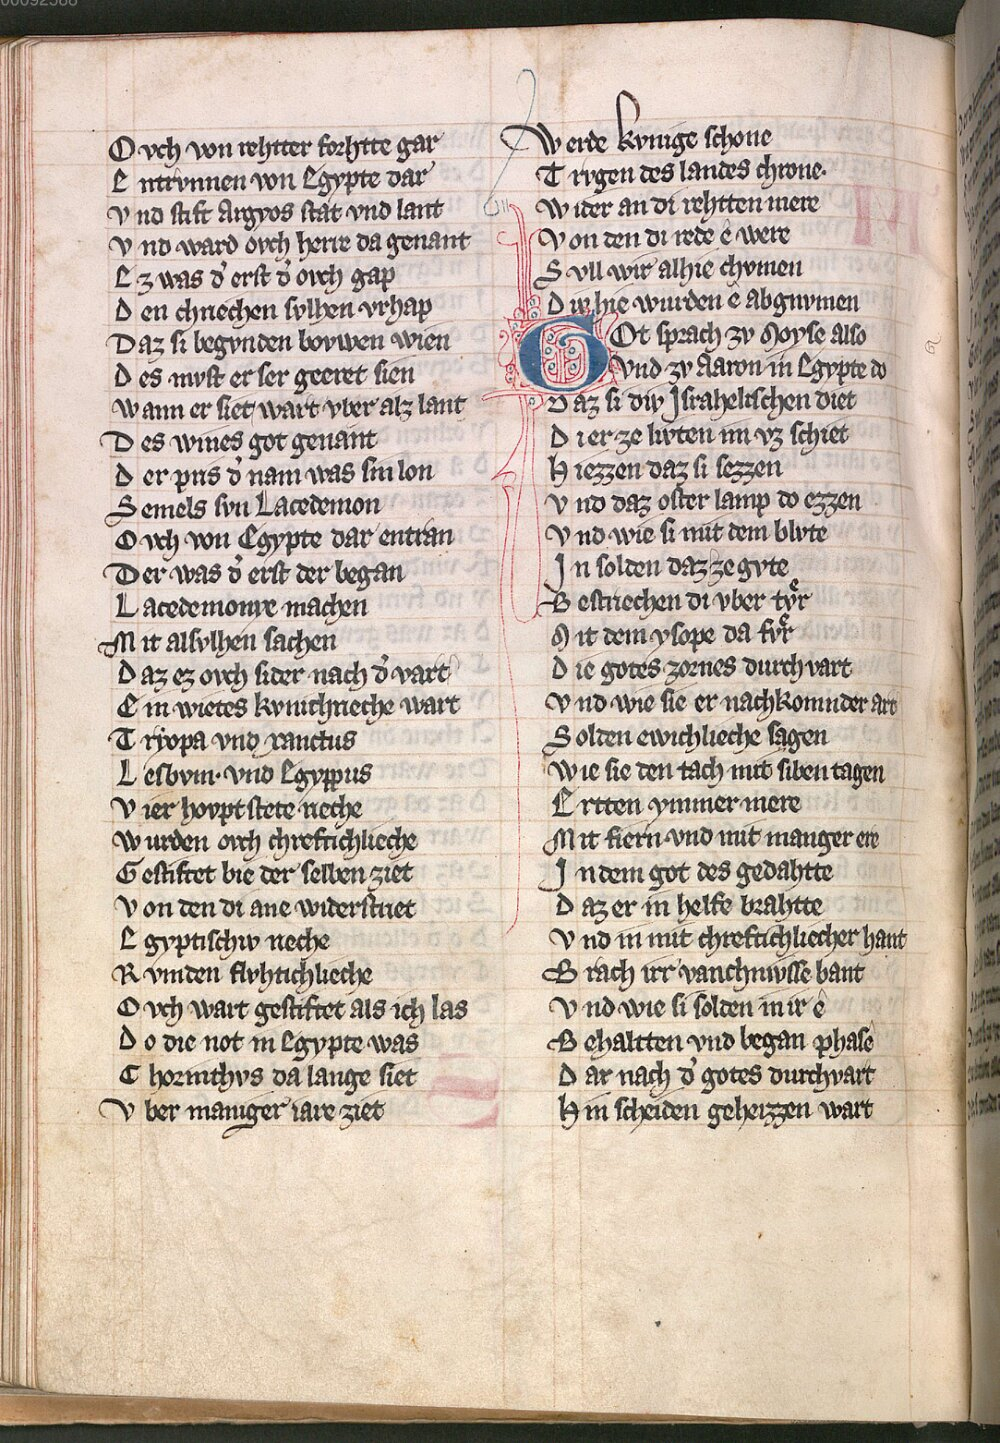 00092568
O vch von rehtter forhtte gar
E ntrvnnen von Egypte dar
V nd stift Argyos stat vnd lant
V nd ward ovch herre da genant
E z was d̾ erst d̾ ovch gap
D en chriechen sylhen vrhap
D az si begvnden bovwen wien
D es mvst er ser geeret sien
W ann er siet wart vber alz lant
D es wines got genant
D er pris d̾ nam was sin lon
S emels svn Lacedemon
O vch von Egypte dar entran
D er was d̾ erst der began
L acedemonye machen
M it alsvlhen sachen
D az ez ovch sider nach d̾ vart
E in wietes kvnichrieche wart
T ryopa vnd xanctus
L esbvm· vnd Egyppus
V ier hovpt stete rieche
W urden ovch chreftichlieche
G estiftet bie der selben ziet
V on den di ane widerstriet
E gyptischiv rieche
R vmden flvhtichlieche
O vch wart gestiftet als ich las
D o die not in Egypte was
C horinthvs da lange siet
V ber maniger iare ziet
W erde kvnige schone
T rvgen des landes chrone·
W ider an di rehtten mere
V on den di rede ê were
S vll wir alhie chvmen
D ie hie wurden ê abgnvmen
G Ot sprach zv Moyse also
Vnd zv Aaron in Egypte do
D az si div Israhelischen diet
D i er ze livten im vz schiet
H iezzen daz si sezzen
V nd daz oster lamp do ezzen
V nd wie si mit dem blvte
I n solden daz ze gvte
B estriechen di vber tvͤr
M it dem ysope da fvͤr
D ie gotes zornes durchvart
V nd wie sie er nachkomnder art
S olden ewichlieche sagen
W ie sie den tach mit siben tagen
E rtten ymmer mere
M it fiern vnd mit manger ere
I n dem got des gedahtte
D az er in helfe brahtte
V nd in mit chreftichliecher hant
B rach irr vanchnvsse bant
V nd wie si solden in ir ê
B ehaltten vnd began phasê
D ar nach d̾ gotes durchvart
H in scheiden geheizzen wart